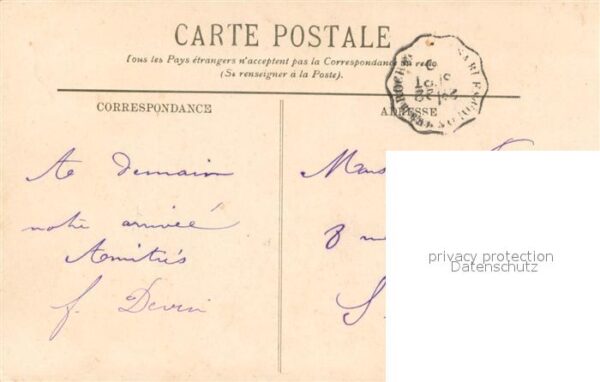 CARTE POSTALE
Tous les Pays étrangers n'acceptent pas la Correspondance au recto
(Se renseigner à la Poste).
CORRESPONDANCE
ADRESSE
A demain
notre arrivée
Amitiés
f. Devin
8
S
privacy protection
Datenschutz